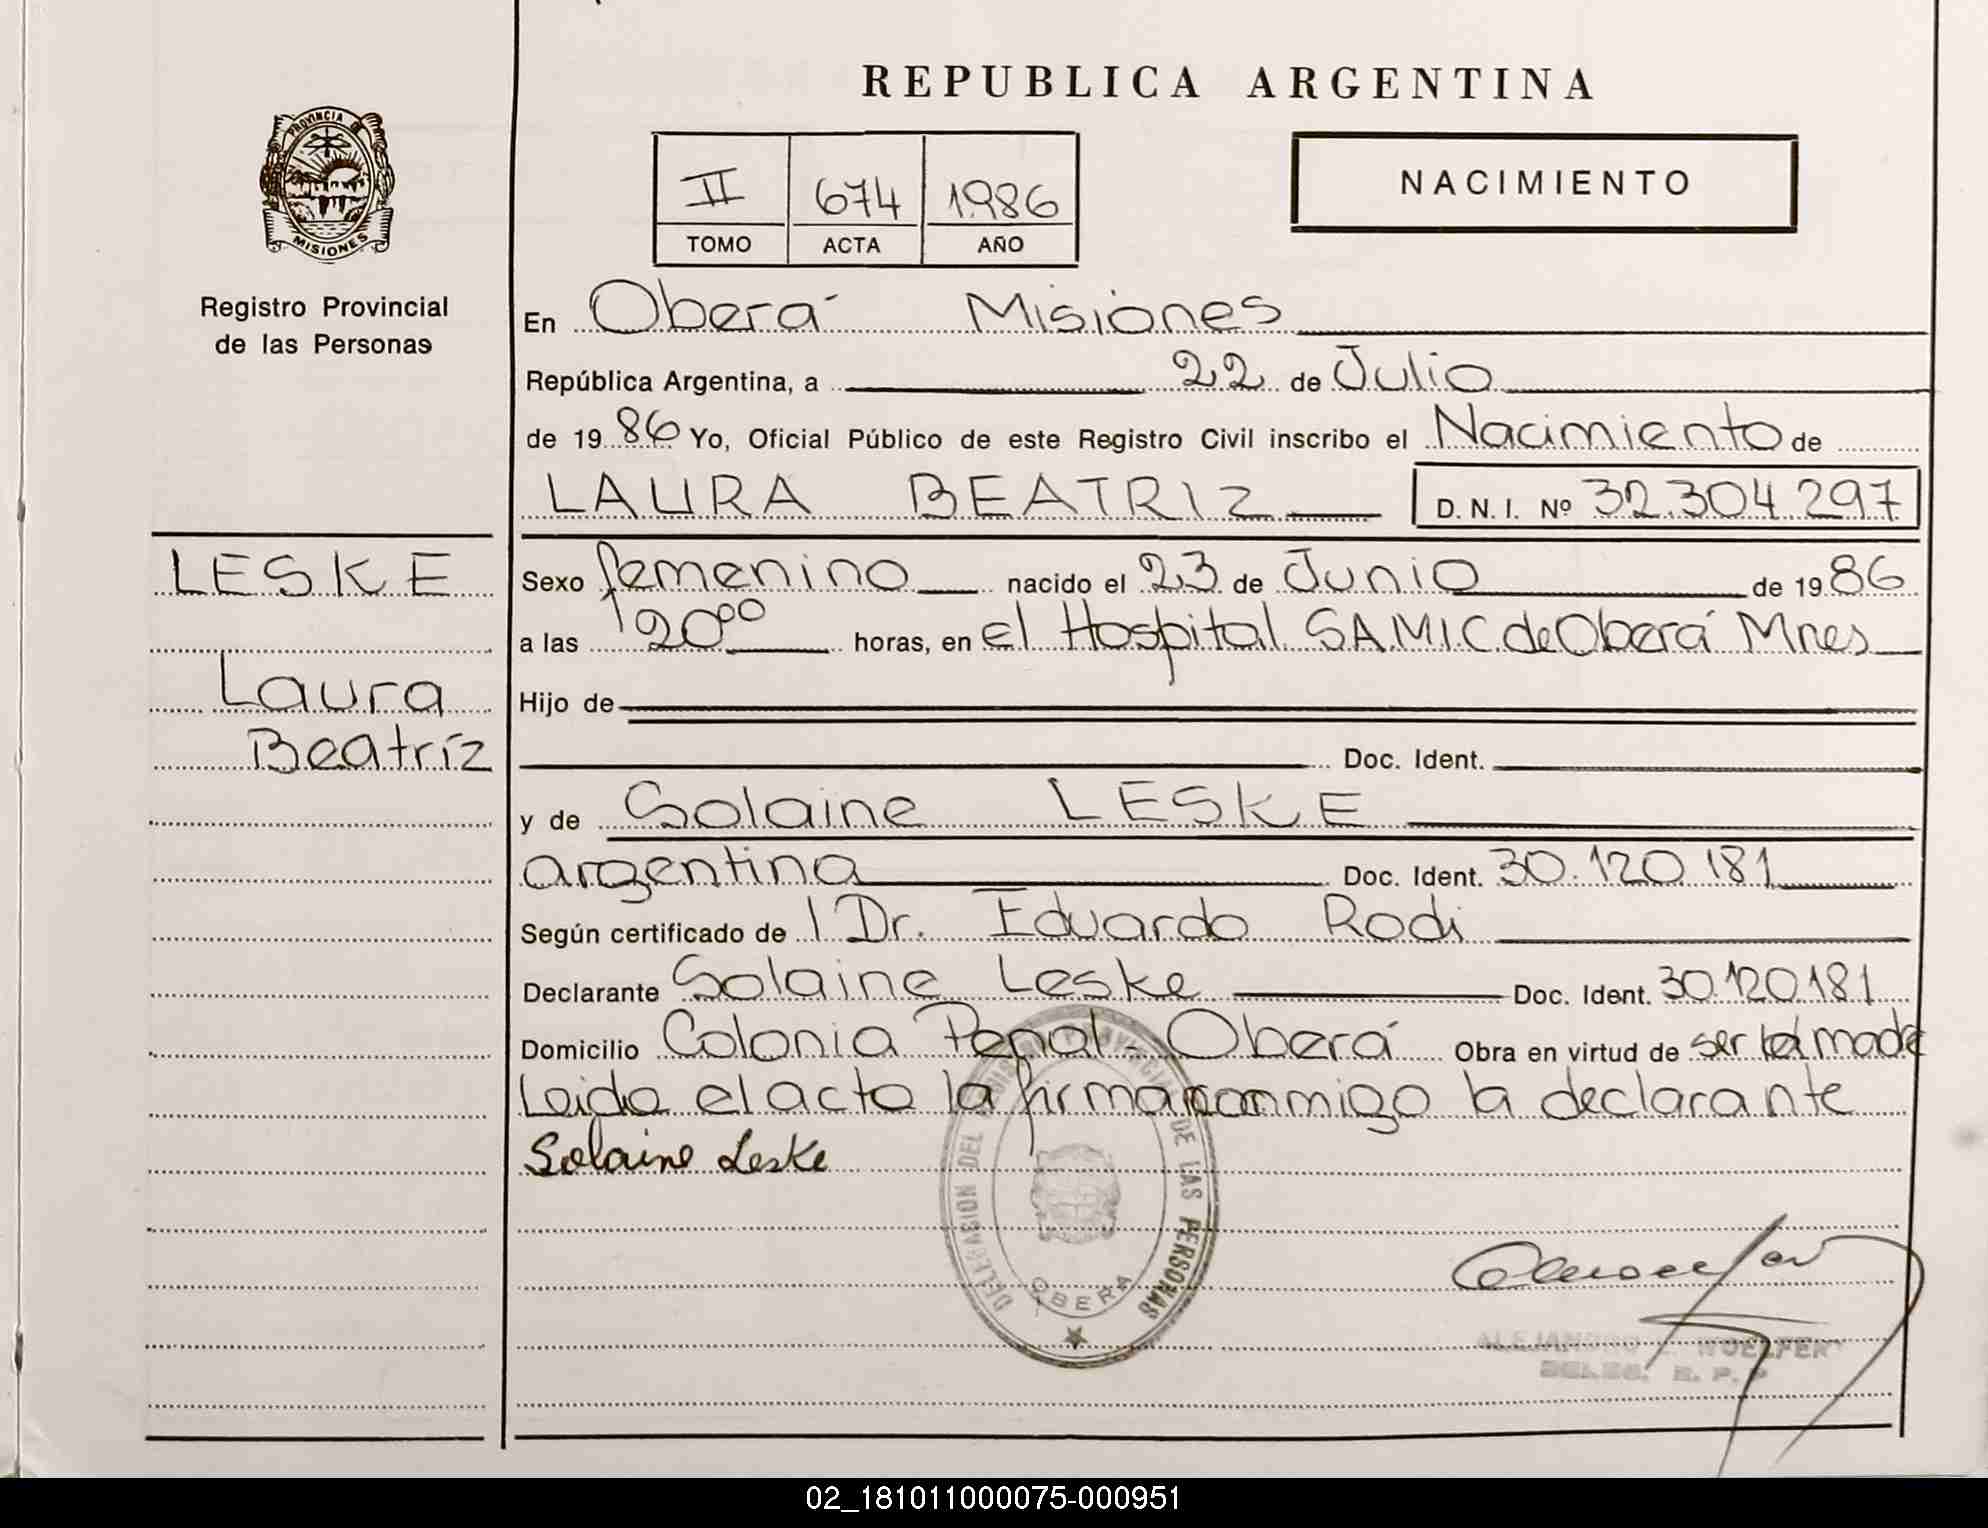 REPUBLICA ARGENTINA
PROVINCIA DE
MISIONES
Registro Provincial
de las Personas
II 674 1986
TOMO ACTA AÑO
NACIMIENTO
En Oberá Misiones
República Argentina, a 22 de Julio
de 1986 Yo, Oficial Público de este Registro Civil inscribo el Nacimiento de
LAURA BEATRIZ D. N. I. Nº 32.304.297
LESKE
Laura
Beatríz
Sexo femenino nacido el 23 de Junio de 1986
a las 20⁰⁰ horas, en el Hospital S.A.M.I.C. de Oberá Mnes
Hijo de
Doc. Ident.
y de Solaine LESKE
argentina Doc. Ident. 30.120.181
Según certificado de Dr. Eduardo Rodi
Declarante Solaine Leske Doc. Ident. 30.120.181
Domicilio Colonia Penal - Oberá Obra en virtud de ser
Leido el acta la firma conmigo la declarante
Solaine Leske
DELEGACION DEL REGISTRO PROVINCIAL DE LAS PERSONAS
OBERA
ALEJANDRO WOELFERT
DELEG. R. P. P.
02_181011000075-000951